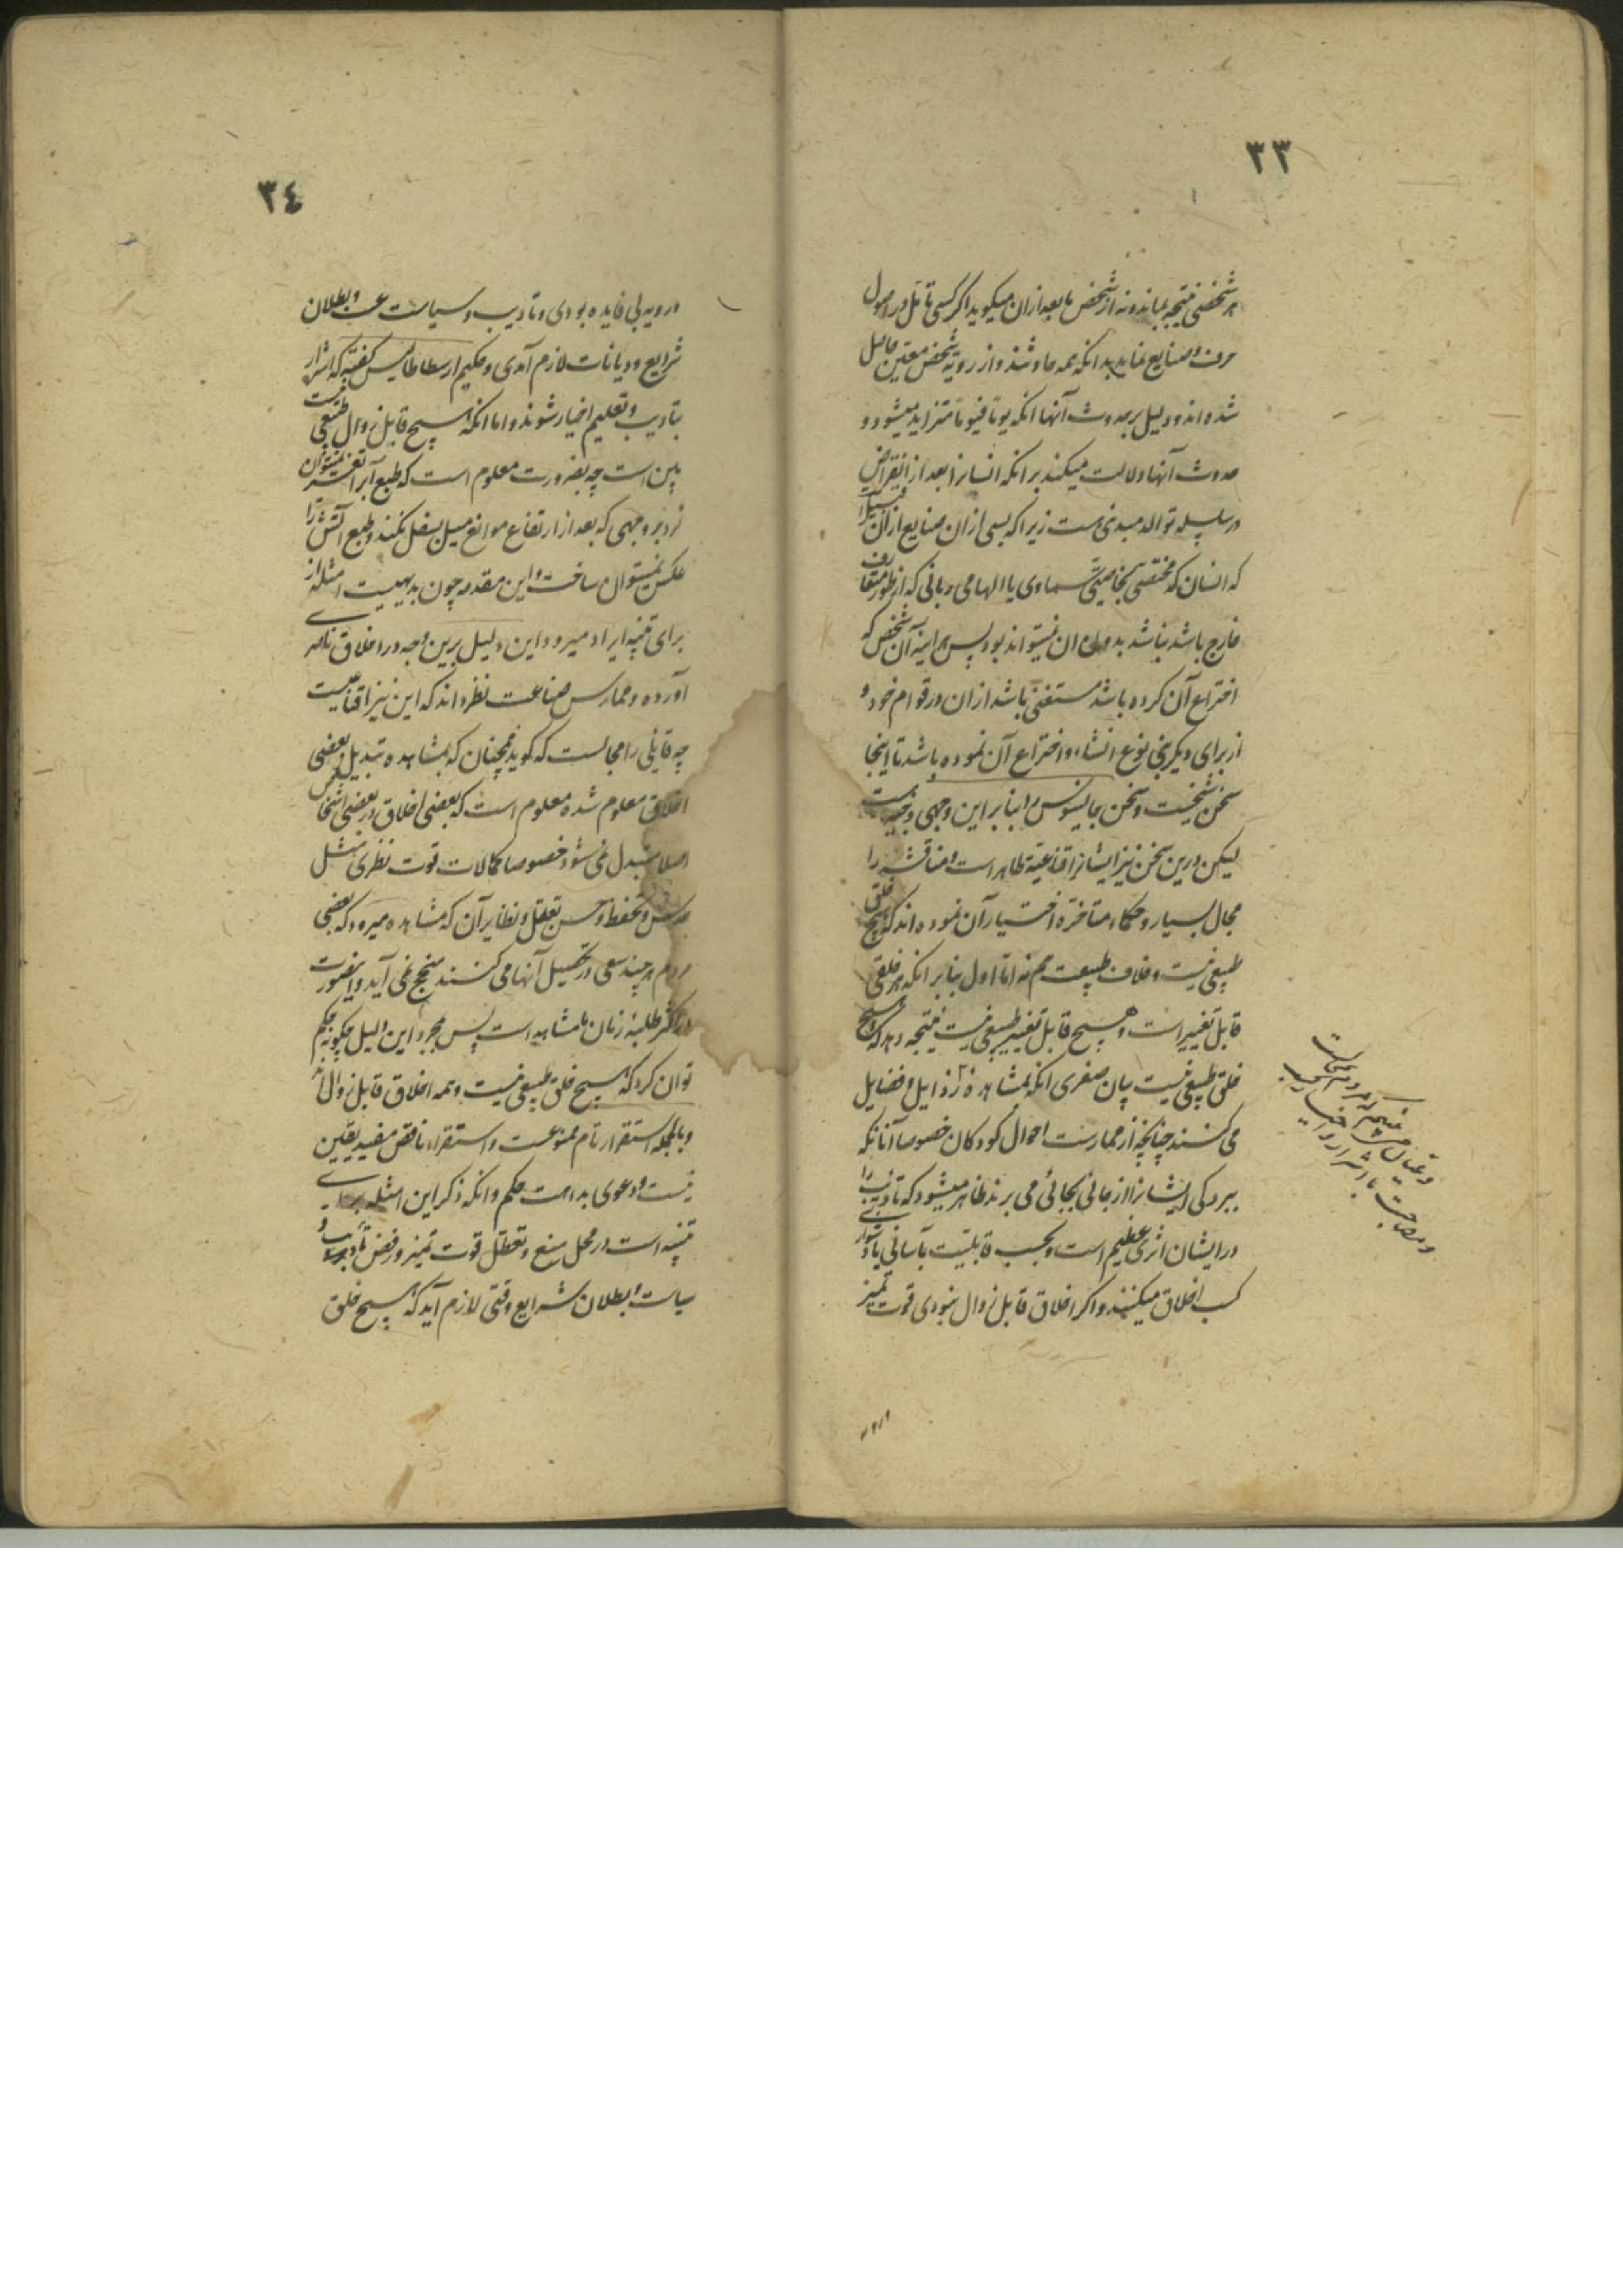 ٣٣
هر شخصی نتیجه بماند و نه از شخص ما بعد ازان میکوید اکر کسی تأمل در اصول
حرف و صنایع نماید بداند که همه حادثند و از رویه شخص معین حاصل
شده اند و دلیل بر حدوث آنها انکه یوما فیوما متزاید میشود و
حدوث آنها دلالت میکند بر انکه انسانرا بعد از انقراض
در سلسله توالد مبدئی هست زیرا که بسی ازان صنایع ازان
که انسان که مختص بخاصیتی سماوی یا الهامی ربانی که از طور متعارف
خارج باشد نباشد بدون ان نمیتواند بود پس هر اینه آن شخص که
اختراع آن کرده باشد مستغنی باشد ازان در قوام خود و
از برای دیکر بنی نوع انشاء و اختراع آن نموده باشد تا اینجا
سخن شیخست و سخن جالینوس بنا بر این وجهی وجیه است
لیکن درین سخن نیز ایشانرا اقناعیة ظاهر است و مناقشه را
مجال بسیار و حکماء متاخره اختیار آن نموده اند که هیچ خلقی
طبیعی نیست و خلاف طبیعت هم نه اما اول بنابر انکه هر خلقی
قابل تغییر است و هیچ قابل تغییر طبیعی نیست نتیجه دهد که هیچ
خلق طبیعی نیست بیان صغری انکه بمشاهده رذایل و فضایل
می کنند چنانچه از ممارست احوال کودکان خصوصا آنانکه
ببردکی ایشانرا از جائی بجائی می برند ظاهر میشود که تادیب را
در ایشان اثری عظیم است و بحسب قابلیت بآسانی یا دشواری
کسب اخلاق میکنند و اکر اخلاق قابل زوال نبودی قوت تمییز
و رویه
٣٤
و رویه بی فایده بودی و تادیب و سیاست عبث و بطلان
شرایع و دیانات لازم آمدی و حکیم ارسطاطالیس کفته که اشرار
بتادیب و تعلیم اخیار شوند و اما انکه هیچ قابل زوال طبیعی نیست
بین است چه بضرورت معلوم است که طبع آبرا تغییر نمیتوان
کرد بر وجهی که بعد از ارتفاع موانع میل بسفل نکند و طبع آتش را
عکس نمیتوان ساخت و این مقدمه چون بدیهیست امثله از
برای تنبیه ایراد میرود این دلیل برین وجه در اخلاق ناصری
آورده و ممارس صناعت نظر داند که این نیز اقناعیست
چه قایلی را مجالست که کوید همچنان که بمشاهده تبدیل بعضی
اخلاق معلوم شده معلوم است که بعضی اخلاق در بعضی اشخاص
اصلا متبدل نمی شود خصوصا کمالات قوت نظری مثل
حدس و تحفظ و حسن تعقل و نظایر آن که مشاهده میرود که بعضی
مردم هر چند سعی در تحصیل آنها می کنند منجح نمی آید و اینصورت
در اکثر طلبه زمان ما مشاهد است پس بمجرد این دلیل چکونه حکم
توان کرد که هیچ خلق طبیعی نیست و همه اخلاق قابل زوال اند
و بالجمله استقراء تام ممنوعست و استقراء ناقص مفید یقین
نیست و دعوی بداهت حکم و انکه ذکر این امثله برای
تنبیه است در محل منع و تعطل قوت تمیز و رفض تأدیب و
سیاست و بطلان شرایع وقتی لازم آید که هیچ خلق